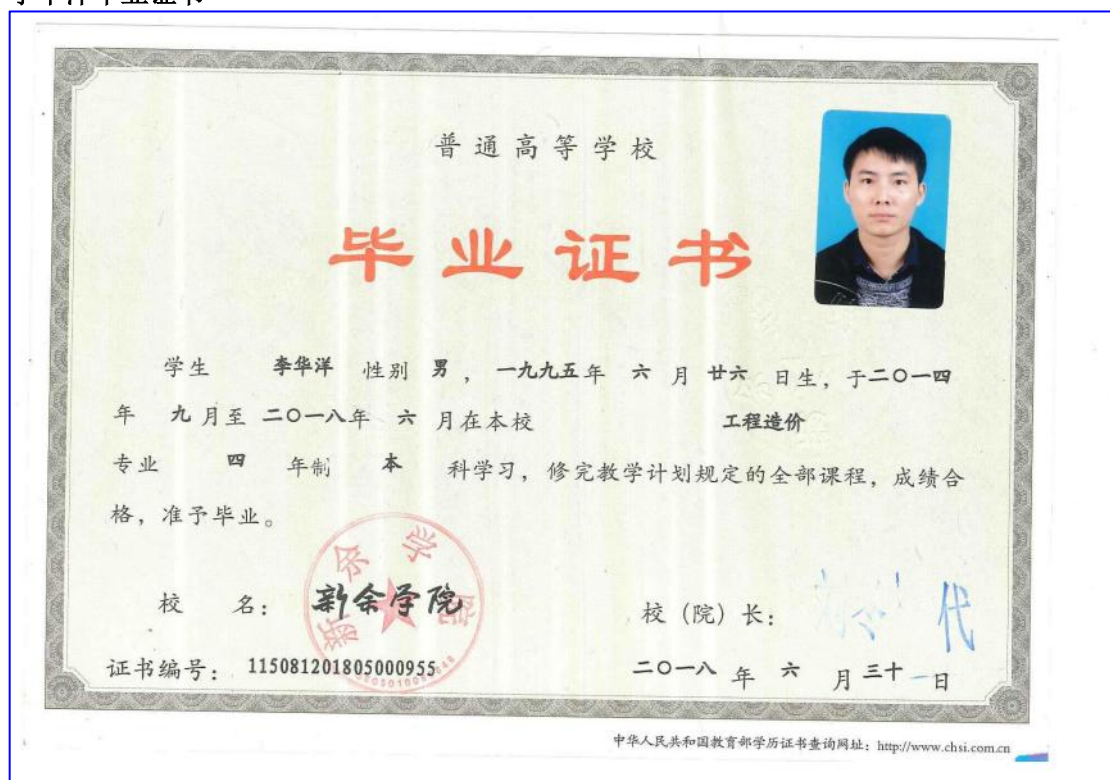 普通高等学校
毕业证书
学生 李华洋 性别 男，一九九五年 六 月 廿六 日生，于二〇一四
年 九月至 二〇一八年 六 月在本校 工程造价
专业 四 年制 本 科学习，修完教学计划规定的全部课程，成绩合
格，准予毕业。
新余学院
校 名： 新余学院 校（院）长：
证书编号： 115081201805000955 二〇一八 年 六 月 三十 日
中华人民共和国教育部学历证书查询网址：http://www.chsi.com.cn